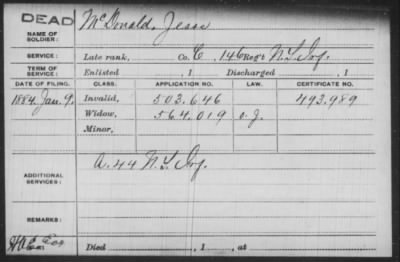 DEAD
NAME OF SOLDIER: McDonald, Jesse
SERVICE: Late rank, Co. C, 146 Reg't N.Y. Inf.
TERM OF SERVICE: Enlisted , 1 Discharged , 1
DATE OF FILING. CLASS. APPLICATION NO. LAW. CERTIFICATE NO.
1884 Jan. 9, Invalid, 503.646 493.989
Widow, 564.019 o.j.
Minor,
ADDITIONAL SERVICES: A. 44 N.Y. Inf.
REMARKS:
Died , 1 , at